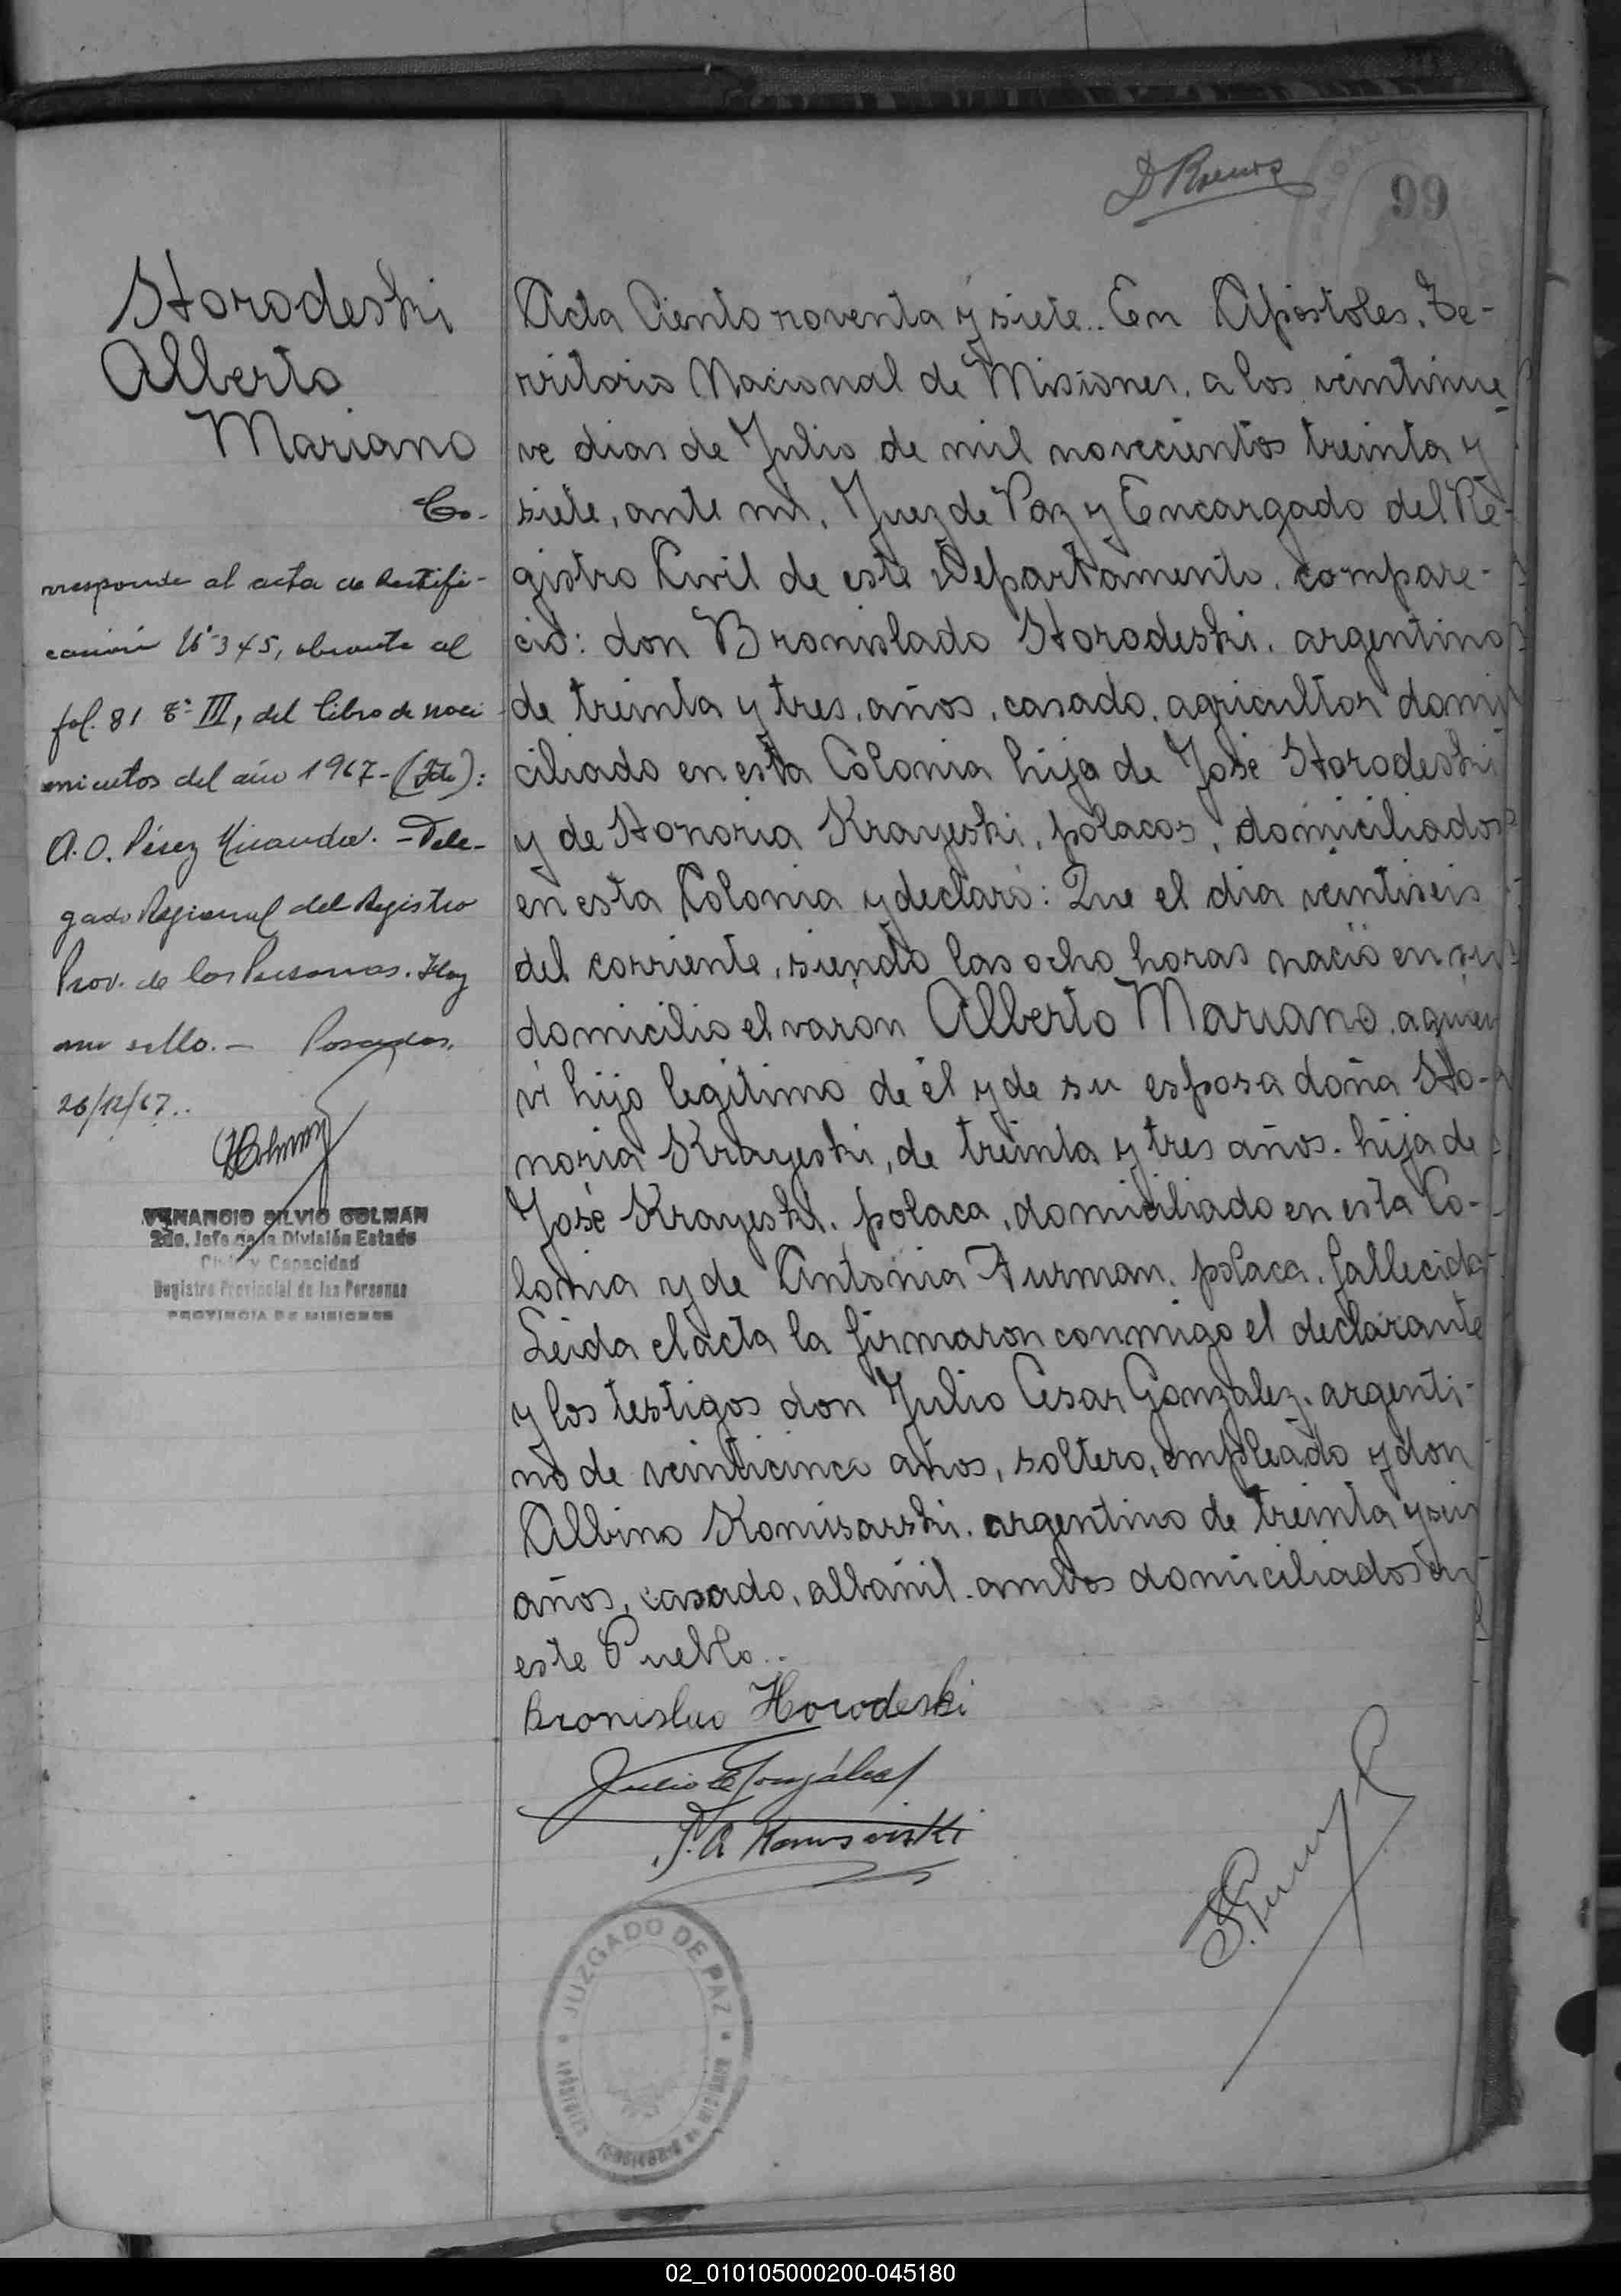 99
Horodeski
Alberto
Mariano
Co-
rresponde al acta de Rectifi-
cación Nº 345, obrante al
fol. 81 Tº III, del Libro de naci
mientos del año 1967- (Fdo):
A. O. Pérez Miranda. - Dele-
gado Regional del Registro
Prov. de las Personas. Hay
un sello. - Posadas,
26/12/67..
VENANCIO SILVIO COLMAN
2do. Jefe de la División Estado
Civil y Capacidad
Registro Provincial de las Personas
PROVINCIA DE MISIONES
Acta Ciento noventa y siete.. En Apóstoles, Te-
rritorio Nacional de Misiones, a los veintinue-
ve dias de Julio de mil novecientos treinta y
siete, ante mi, Juez de Paz y Encargado del Re-
gistro Civil de este Departamento, compare-
ció: don Bronislado Horodeski, argentino
de treinta y tres, años, casado, agricultor domi
ciliado en esta Colonia hijo de José Horodeski
y de Honoria Krayeski, polacos, domiciliados
en esta Colonia y declaró: Que el dia veintiseis
del corriente, siendo las ocho horas nació en su
domicilio el varón Alberto Mariano, a quien
vi hijo legitimo de él y de su esposa doña Ho-
noria Krayeski, de treinta y tres años, hija de
José Krayeski, polaca, domiciliado en esta Co-
lonia y de Antonia Furman, polaca, fallecida
Leida el acta la firmaron conmigo el declarante
y los testigos don Julio Cesar Gonzalez, argenti-
no de veinticinco años, soltero, empleado y don
Albino Komisarski, argentino de treinta y seis
años, casado, albañil, ambos domiciliados en
este Pueblo..
Bronislao Horodeski
Julio C González
J. A Komisarski
JUZGADO DE PAZ
APÓSTOLES
02_010105000200-045180